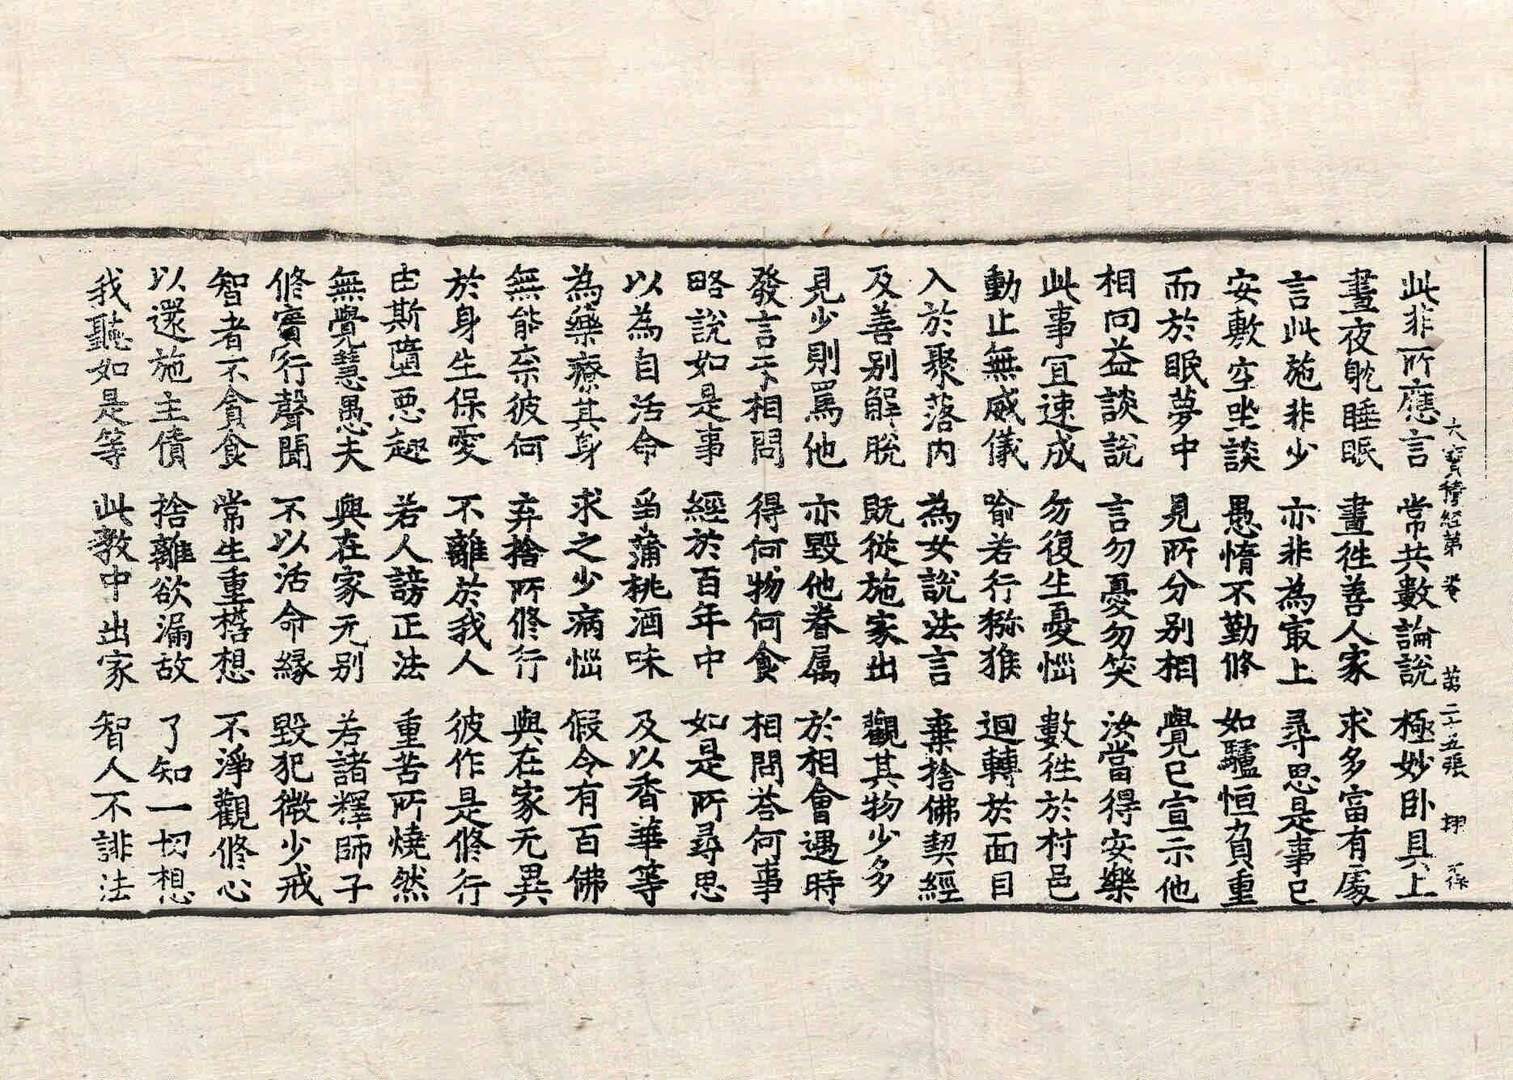 大寶積經第 卷 第二十五張 翔 
此非所應言 常共數論說 極妙卧具上
晝夜躭睡眠 晝徃善人家 求多富有處
言此施非少 亦非為㝡上 尋思是事已
安敷空坐談 愚惰不勤修 如驢恒負重
而於眠夢中 見所分別相 覺已宣示他
相向益談說 言勿憂勿笑 汝當得安樂
此事宜速成 勿復生憂惱 數徃於村邑
動止無威儀 喻若行猕猴 迴轉於面目
入於聚落內 為女說法言 棄捨佛契經
及善別解脫 既從施家出 觀其物少多
見少則罵他 亦毀他眷属 於相會遇時
發言而相問 得何物何食 相問荅何事
略說如是事 經於百年中 如是所尋思
以為自活命 當蒲桃酒味 及以香華等
為藥療其身 求之少病惱 假令有百佛
無能奈彼何 弃捨所修行 與在家无異
於身生保愛 不離於我人 彼作是修行
由斯墮惡趣 若人謗正法 重苦所燒然
無覺慧愚夫 與在家无別 若諸釋師子
修實行聲聞 不以活命緣 毀犯微少戒
智者不貪食 常生重榰想 不淨觀修心
以還施主債 捨離欲漏故 了知一切想
我聽如是等 此教中出家 智人不誹法